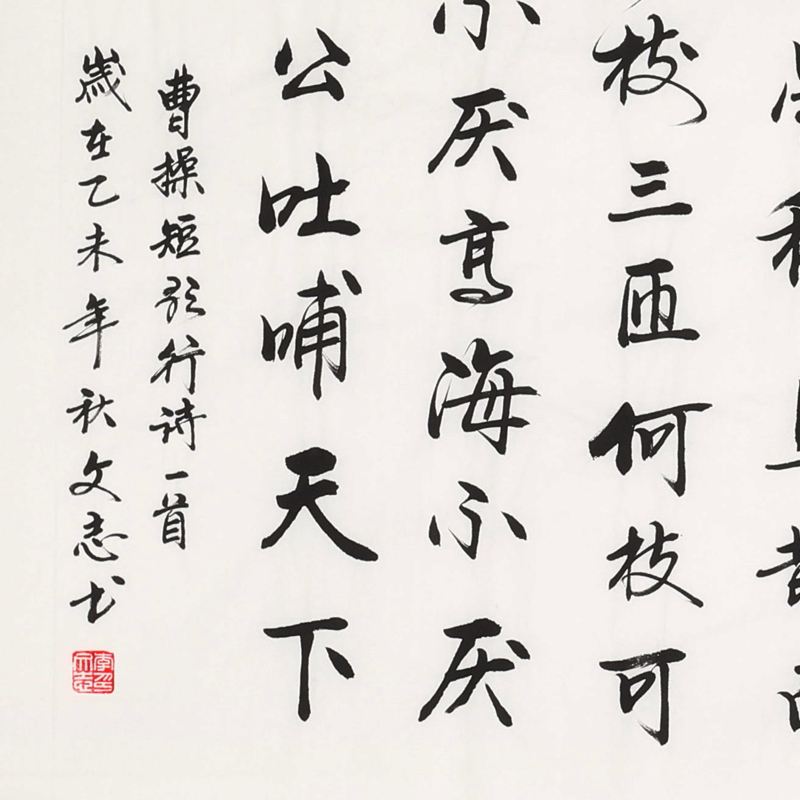 树三匝何枝可
不厌高海不厌
公吐哺天下
曹操短歌行诗一首
歲在乙未年秋文志书